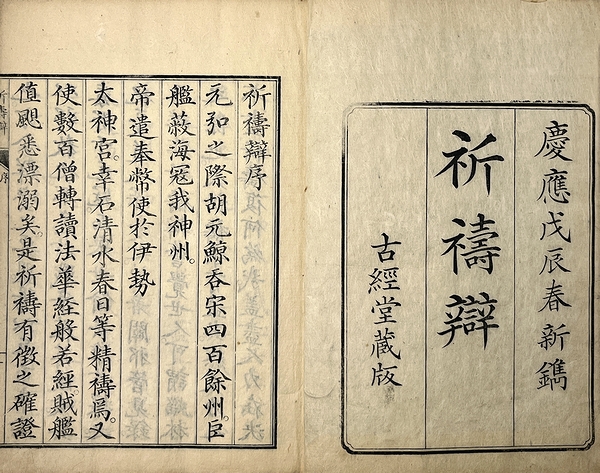 慶應戊辰春新鐫
祈禱辯
古經堂藏版
祈禱辯序
元弘之際胡元鯨吞宋四百餘州。臣
艦蔽海冦我神州。
帝遣奉幣使於伊勢
太神宮。幸石清水春日等精禱焉。又
使數百僧轉讀法華経般若經。賊艦
値颶悉漂溺矣。是祈禱有徴之確證
祈禱辯 序